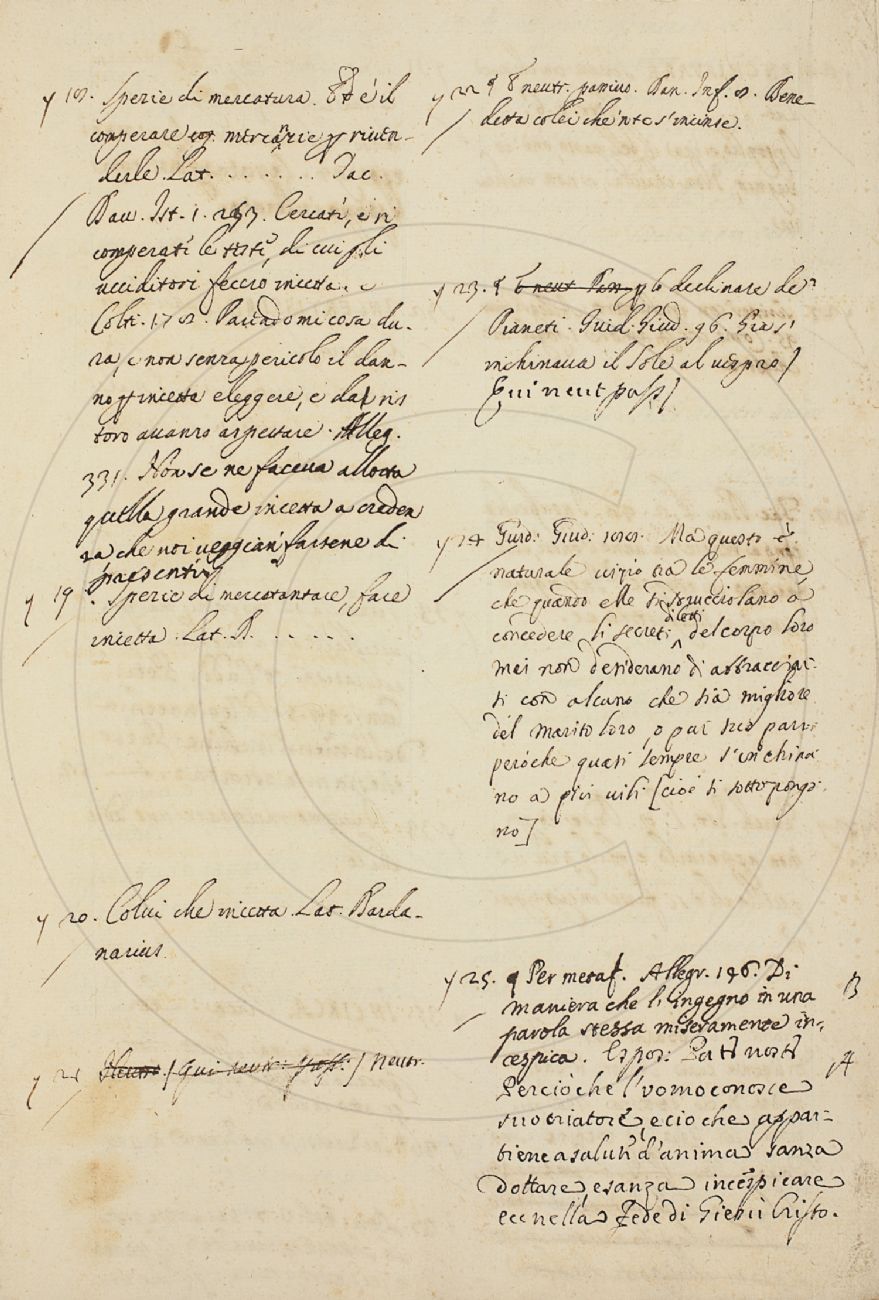 18. Spezie di mercatura. Ed è il
comperare mercanzie p rivẽn-
derle. Lat. . . . . . . Tac.
Dav. Ist. 1. 257. Cercati, e ri
comperati le testi, di cui gli
ucciditori feccro incetta. e
Colt. 178. Parendomi cosa du-
ra, e non senza pericolo il dan-
no p incetta eleggere, e dal ris
toro avanzo aspettare. Alleg.
331. Non se ne faceva allotta
quella grande incetta a creden
za che noi veggian farsene di
presenti
19. Spezie di mercatantare, fare
incetta. Lat. D. . . . . .
20. Colui che incetta. Lat. Darda-
narius
21 [Qui neutr: pass.] neutr.
22 ¶ E neutr. passivo. Dan. Inf. 8. Bene-
detta colei che 'n te s'incinse.
23. ¶ E neut Pan p 6 declinare de'
Pianeti. Guid. Giud. 96. Gia s'
inchinava il Sole al vespro /
Qui neut pass /
24 Guid: Giud: 101. Ma questo è
naturale vizio tra le femmine
che quando elle si sdrucciolano a
concedere li secreti diletti del corpo loro
mai non desiderano di abbracciar-
si con alcuno che sia migliore
del marito loro, o pur suo pari:
peroche quasi sempre s'inchina-
no a piu vili [cioè si sottopongo-
no]
25. ¶ Per metaf. Allegr. 146. Di B
maniera che l'ingegno in una
parola stessa miseramente in-
cespica. Espos: Pat: nost: A
Perciò che l'vomo conosce
suo criatore, e cio che appar-
tiene a saluti d'anima sanza
dottare, e sanza incespicare
ee nella Fede di Giesù Cristo.